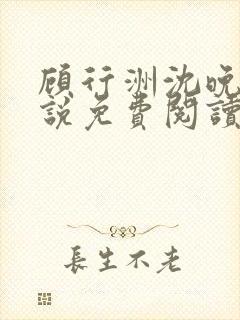 顾行洲沈晚
説免費閱讀
長生不老